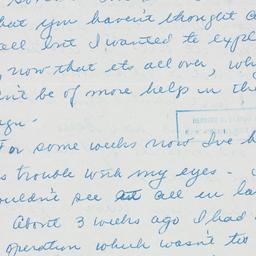 that you haven't thought
all but I wanted to expl
, now that its all over, why
n't be of more help in the
ign.
For some weeks now I've h
s trouble with my eyes -
ouldn't see at all in la
About 3 weeks ago I had
operation which wasn't too